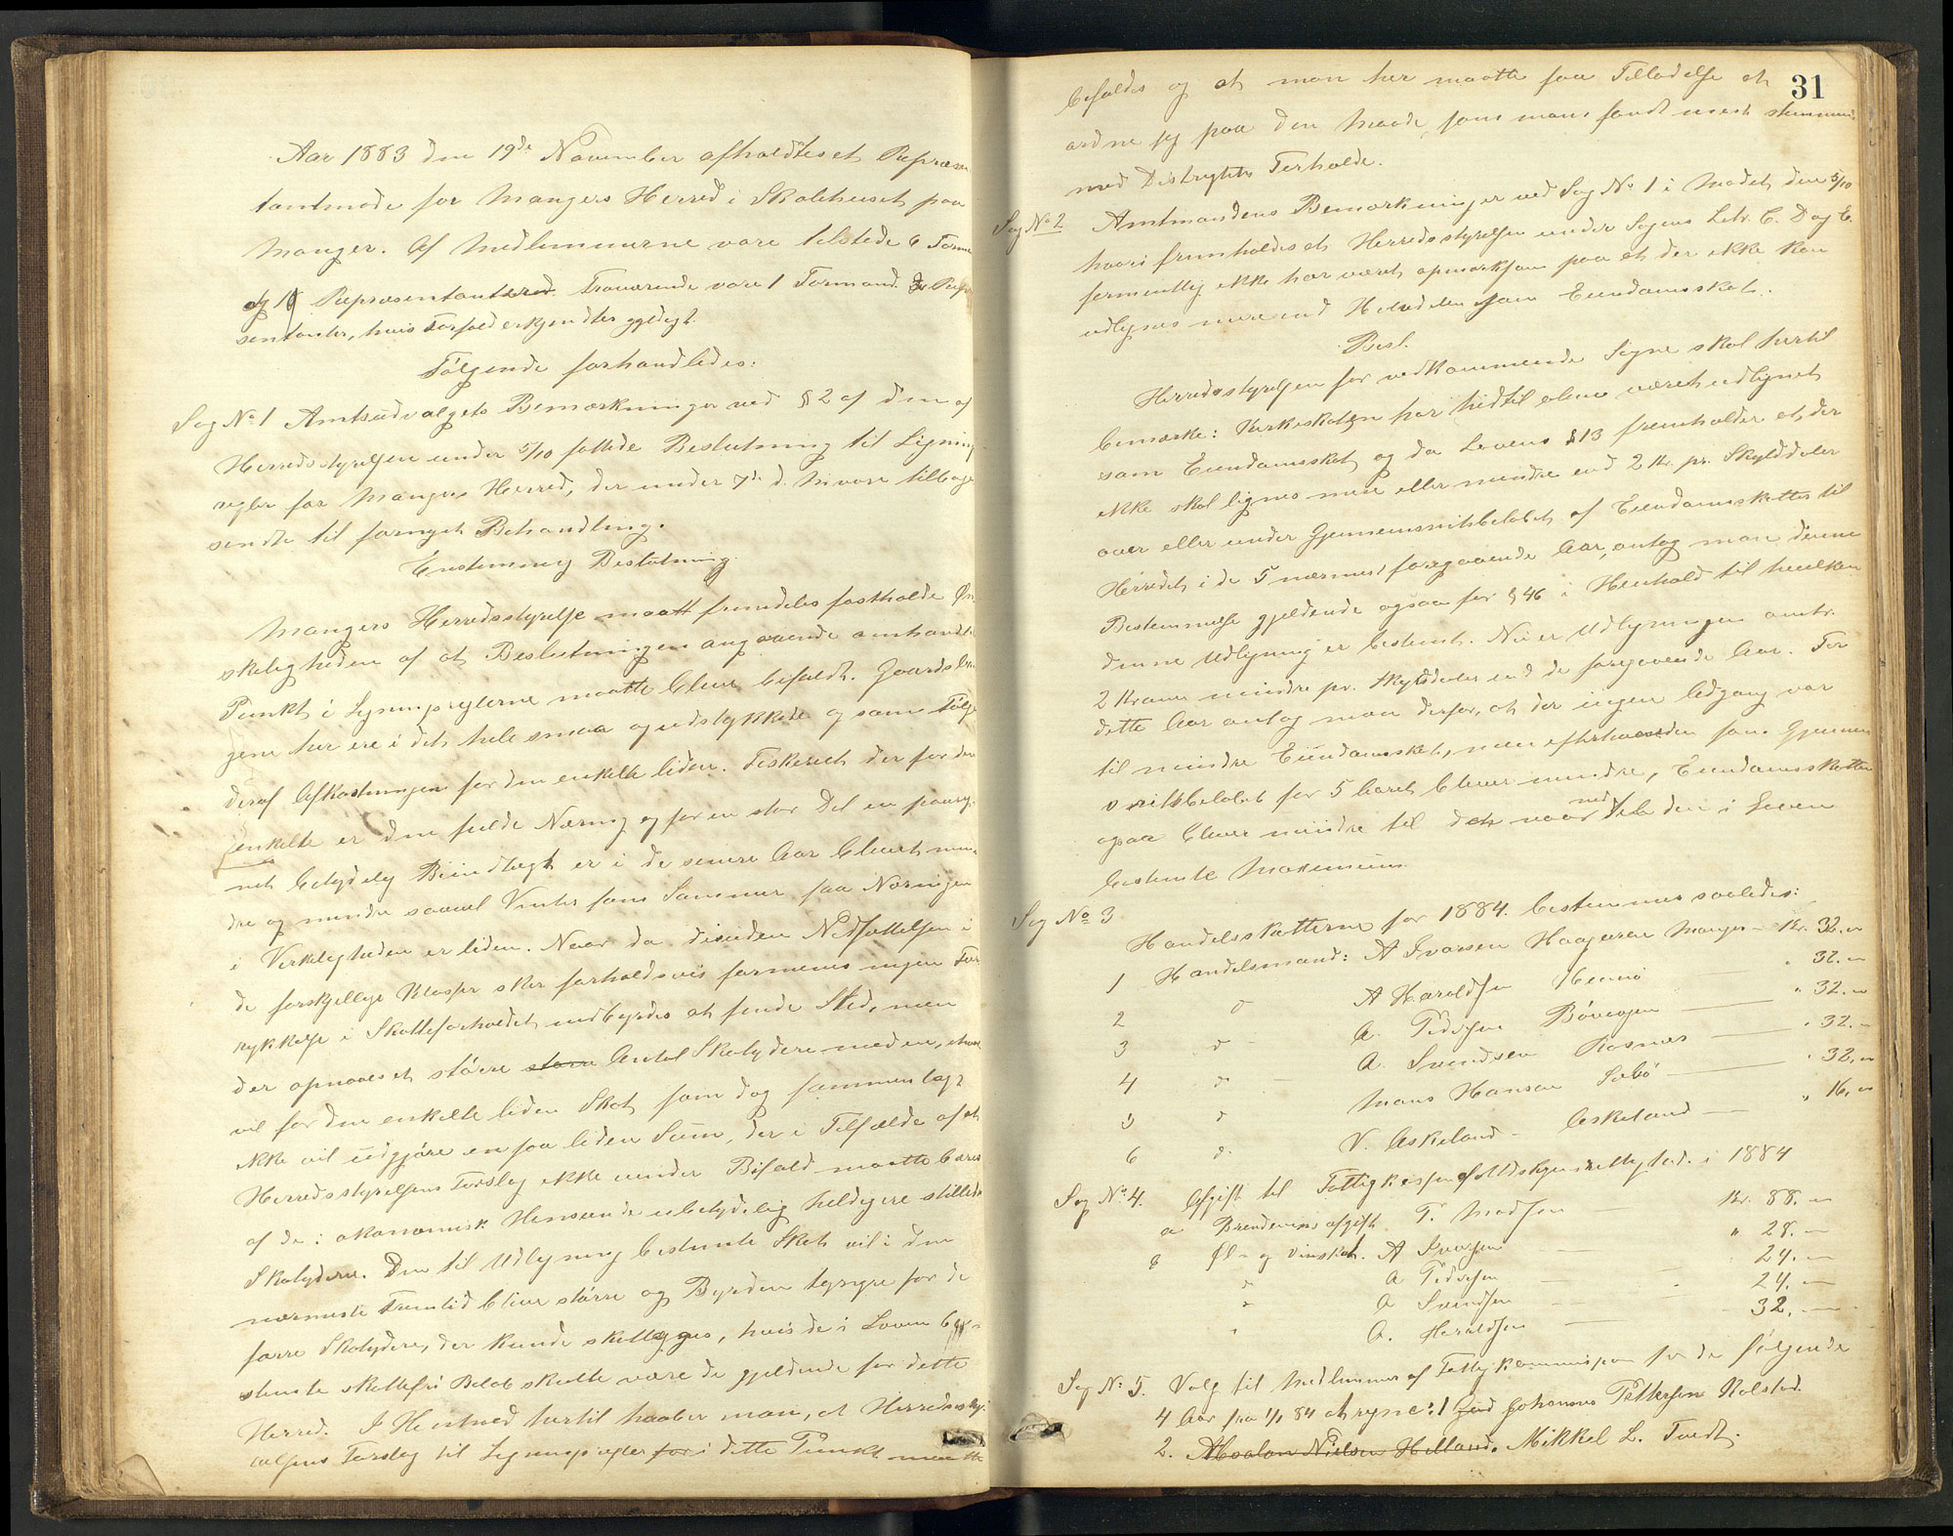 Aar 1883 den 19de November afholdtes et Repræsen
tantmøde for Mangers Herred i Skolehuset paa
Manger. Af Medlemmerne vare tilstede 6 Formæ
og 10 Repræsentanter. Fraværende vare 1 Formand. 2 Repræ
sentanter, hvis Forfald erkjendtes gyldigt.
Følgende forhandledes:
Sag No 1 Amtsudvalgets Bemærkninger ved § 2 af den af
Herredsstyrelsen under 5/10 fattede Beslutning til Lignings
regler for Mangers Herred, der under 7de d. M. vare tilbage
sendte til fornyet Behandling.
Enstemmig Beslutning.
Mangers Herredsstyrelse maatt fremdeles fastholde Øn
skeligheden af at Beslutningen angaaende omhandl
Punkt i Ligningsreglerne maatte blive bifaldt. Gaardsbru
gene her ere i det hele smaa og udstykkede og som Følge
deraf Afkastningen for den enkelte liden. Fiskeriet der for den
enkelte er den fulde Næring og for en stor Del en paareg
net betydelig Biindtægt er i de senere Aar blevet min
dre og mindre saavel Vinter som Sommer saa Næringen
i Virkeligheden er liden. Naar da desuden Nedsættelsen i
de forskjellige Klasser sker forholdsvis formenes ingen For
rykkelse i Skatteforholdet indbyrdes at finde Sted, men
der opnaaes et større store Antal Skatydere med en, etwas
vil for den enkelte liden Skat som dog sammenlagt
ikke vil udgjøre en saa liden Sum, der i Tilfælde af at
Herredsstyrelsens Forslag ikke vinder Bifald maatte bæres
af de i økonomisk Henseende ubetydelig heldigere stillede
Skatydere. Den til Udligning bestemte Skat vil i den
nærmeste Fremtid blive større og Byrden tyngre for de
færre Skatydere, der kunde skatlægges, hvis de i Loven be
stemte skattefri Beløb skulde være de gjeldende for dette
Herred. I Henhold hertil haaber man, at Herredssty
relsens Forslag til Ligningsregler for i dette Punkt maatte
31
bifaldes og at man her maatte faa Tilladelse at
ordne sig paa den Maade, som man fandt mest stemmende
med Distryktets Forholde.
Sag No 2 Amtmandens Bemærkninger ved Sag No 1 i Mødet den 5/10
hvori fremholdes at Herredsstyrelsen under Sagens Litr. C. D og E.
formentlig ikke har været opmærksom paa at der ikke kan
udlignes mere end Halvdelen som Eiendomsskat.
Besl.
Herredsstyrelsen for vedkommende Sogne skal hertil
bemærke: Kirkeskatten har hidtil alene været udlignet
som Eiendomsskat og da Lovens § 13 fremholder at der
ikke skal lignes mere eller mindre end 2 Kr. pr. Skylddaler
over eller under Gjennemsnitsbeløbet af Eiendomsskatten til
Herredet i de 5 nærmest foregaaende Aar, antog man denne
Bestemmelse gjeldende ogsaa for § 46 i Henhold til hvilken
denne Udligning er bestemt. Nu er Udligningen omtr.
2 Kroner mindre pr. Skylddaler end de foregaaende Aar. For
dette Aar antog man derfor, at der ingen Adgang var
til mindre Eiendomsskat, men efterhaanden som Gjennem
snitsbeløbet for 5 Aaret bliver mindre, Eiendomsskatten
ogsaa bliver mindre til det naar ned til den i Loven
bestemte Maximum.
Sag No 3
Handelsskatterne for 1884 bestemmes saaledes:
1 Handelsmand: A Ivarsen Haagøren Manger - Kr. 32. "
2 d A Haraldsen Hennø " 32. "
3 d A. Pedersen Bøvogen " 32. "
4 d A. Svendsen Rosnæs " 32. "
5 d Mons Hansen Sæbø " 32. "
6 d. V. Askeland - Askeland " 16. "
Sag No 4. Afgift til Fattigkassen af Udskjenkningsret i 1884
a Brendevinsafgift T. Madsen Kr. 88. "
b Øl- og Vinskat. A Ivarsen " 28. "
" A Pedersen 24. "
" A Svendsen 24. "
" A. Haraldsen 32. "
Sag No 5. Valg til Medlemmer af Fattigkommissionen for de følgende
4 Aar fra 1/1 84 at regne: 1 Johannes Pettersen Rolstad.
2. Absalon Nielsen Helland. Mikkel L. Tvedt.